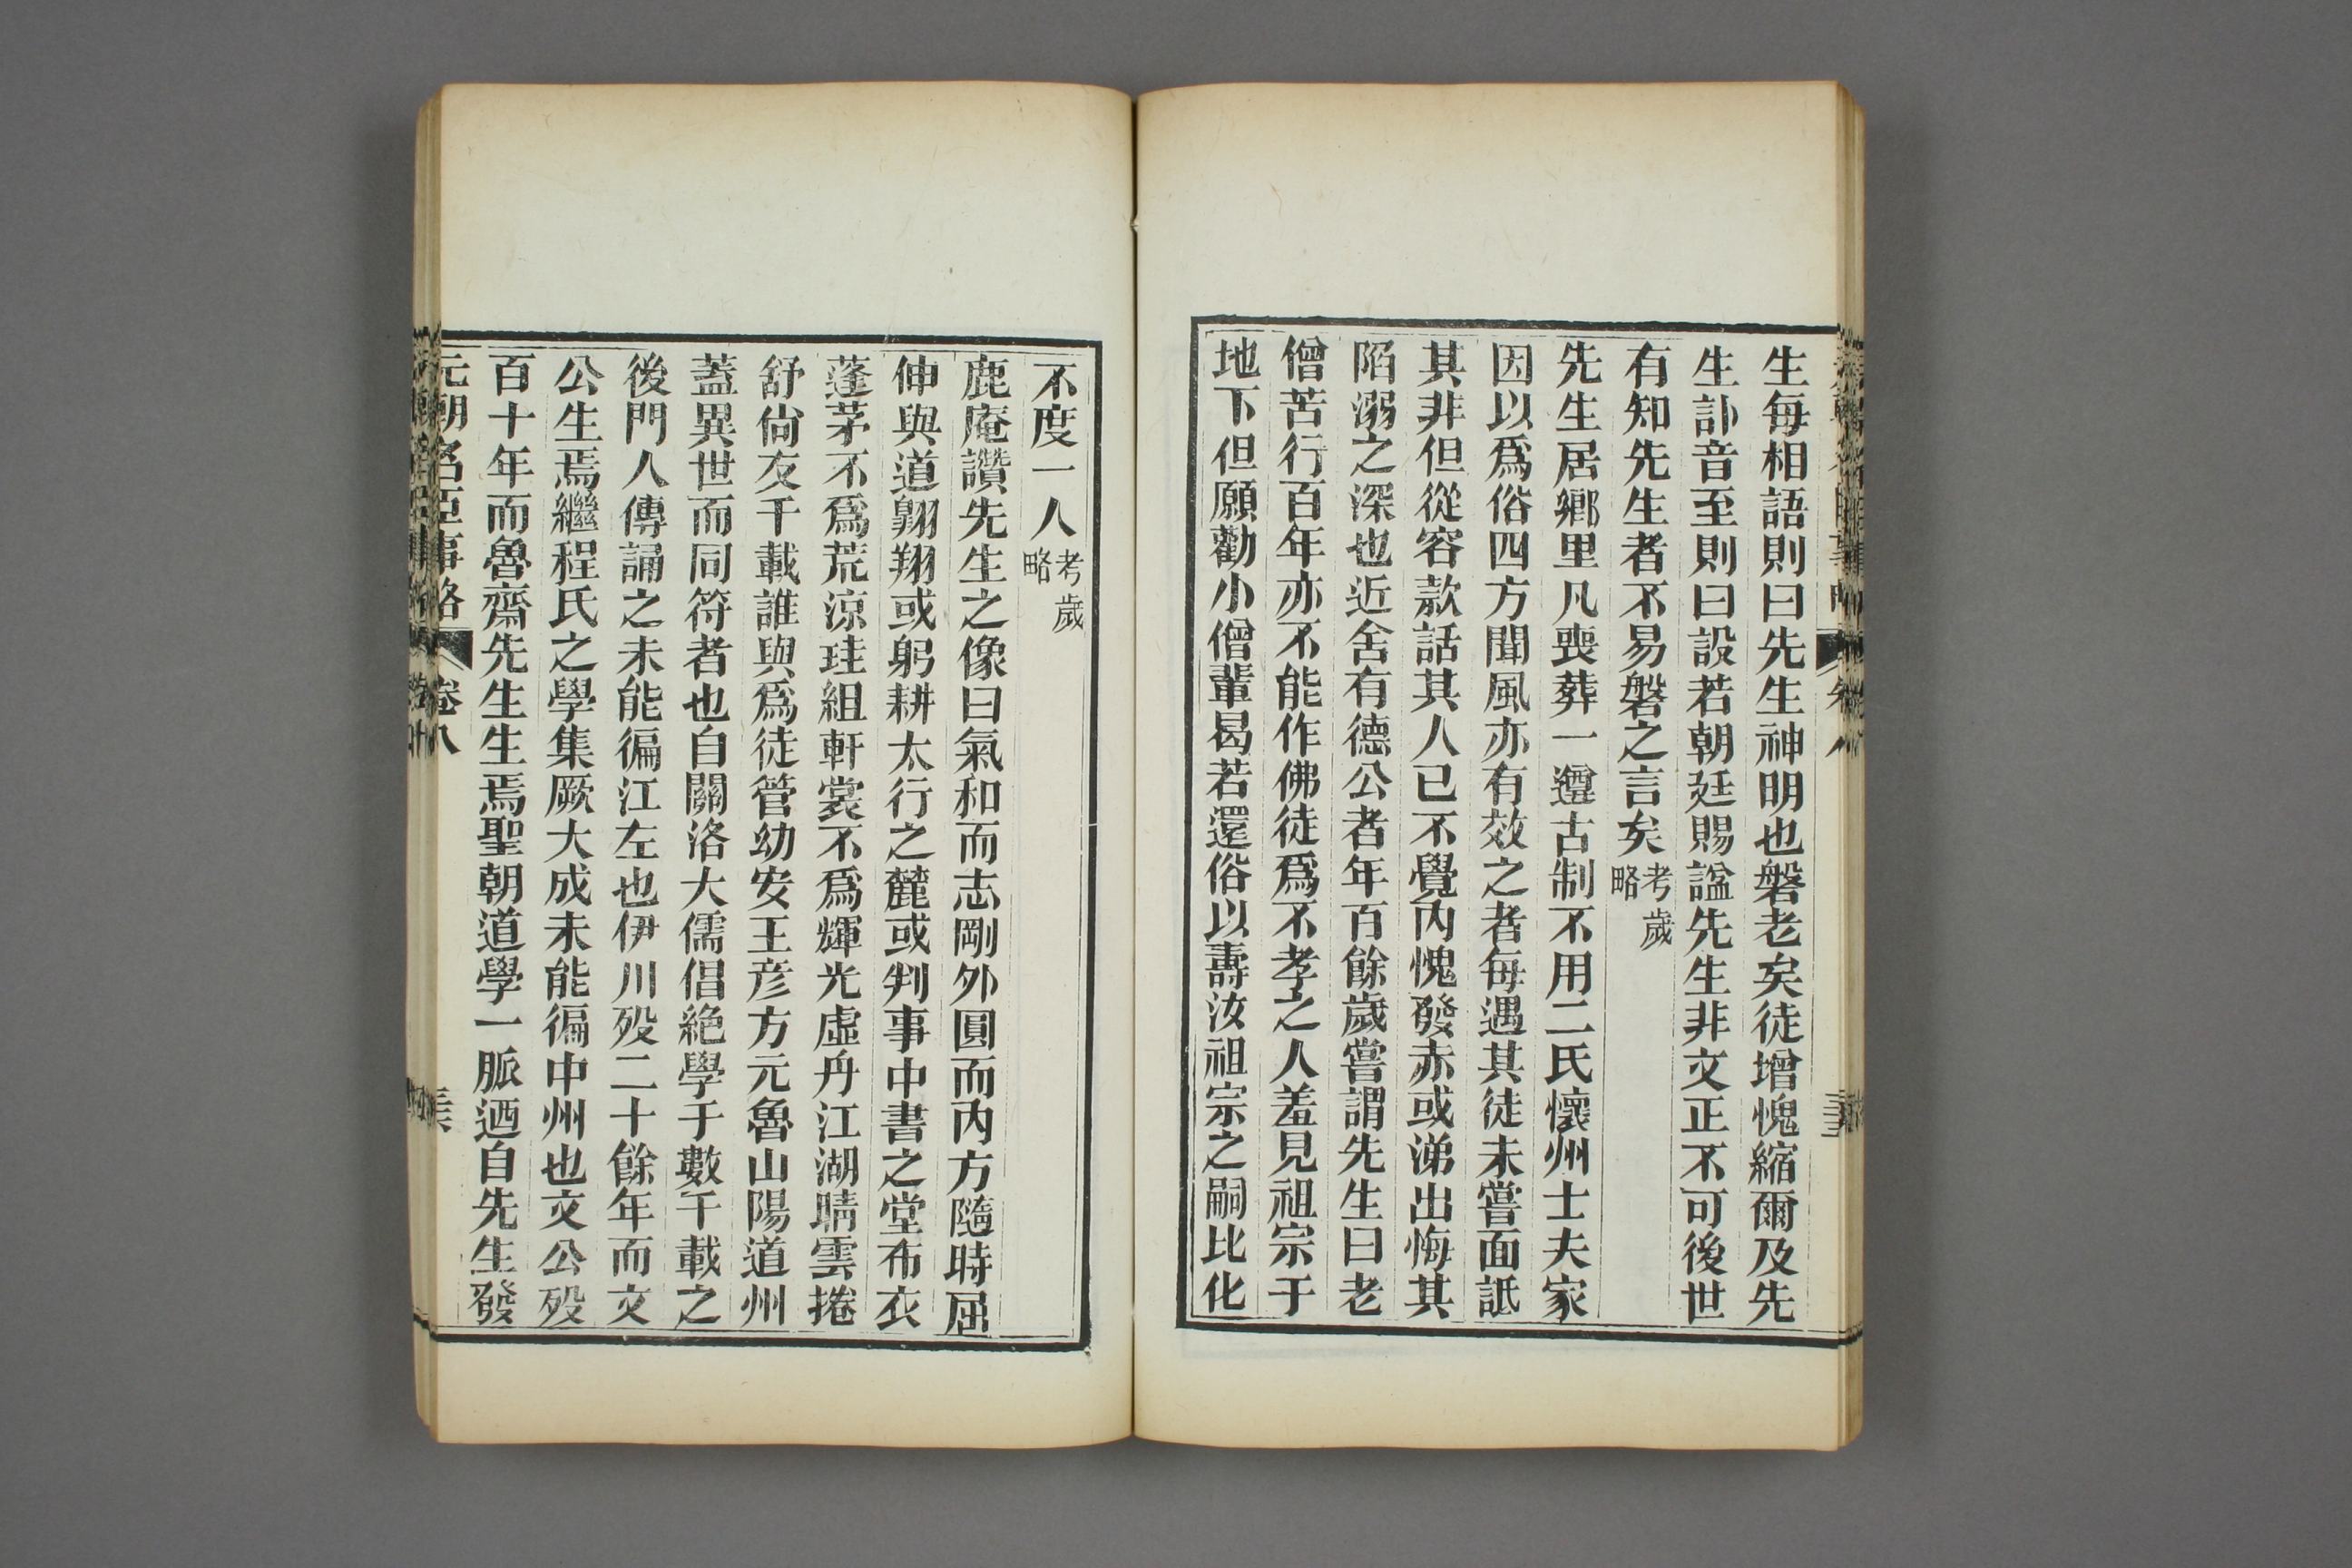 生每相語則曰先生神明也磐老矣徒增愧縮爾及先
生訃音至則曰設若朝廷賜諡先生非文正不可後世
有知先生者不易磐之言矣考歲略
先生居鄉里凡喪葬一遵古制不用二氏懷州士夫家
因以爲俗四方聞風亦有效之者每遇其徒未嘗面詆
其非但從容款話其人已不覺內愧發赤或涕出悔其
陷溺之深也近舍有德公者年百餘歲嘗謂先生曰老
僧苦行百年亦不能作佛徒爲不孝之人羞見祖宗于
地下但願勸小僧輩曷若還俗以壽汝祖宗之嗣比化
不度一人考歲略
鹿庵讚先生之像曰氣和而志剛外圓而內方隨時屈
伸與道翺翔或躬耕太行之麓或判事中書之堂布衣
蓬茅不爲荒涼珪組軒裳不爲輝光虛舟江湖晴雲捲
舒尙友千載誰與爲徒管幼安王彥方元魯山陽道州
蓋異世而同符者也自關洛大儒倡絶學于數千載之
後門人傳誦之未能徧江左也伊川歿二十餘年而文
公生焉繼程氏之學集厥大成未能徧中州也文公歿
百十年而魯齋先生生焉聖朝道學一脈迺自先生發
元朝名臣事略 卷八